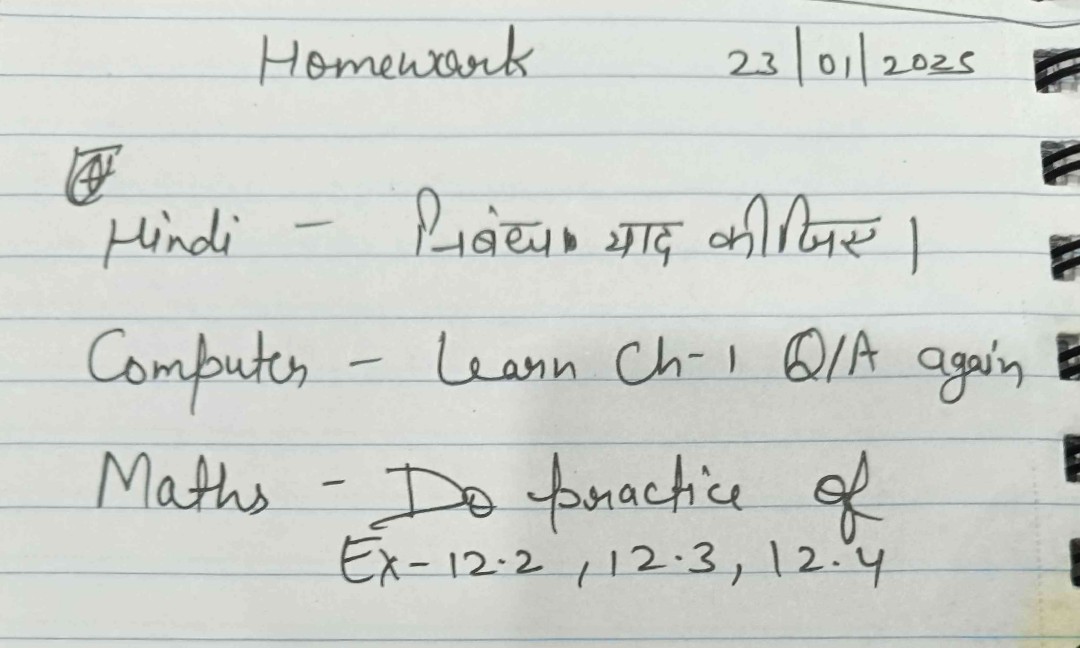 Homework 23/01/2025
Hindi - निबंध याद कीजिए।
Computer - Learn Ch-1 Q/A again
Maths - Do practice of
Ex-12.2, 12.3, 12.4